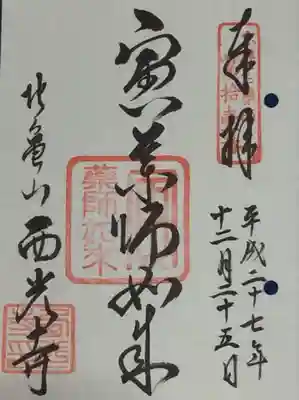 奉拝
平成二十七年
十二月二十五日
寅薬師如来
薬師如来
北亀山西光寺